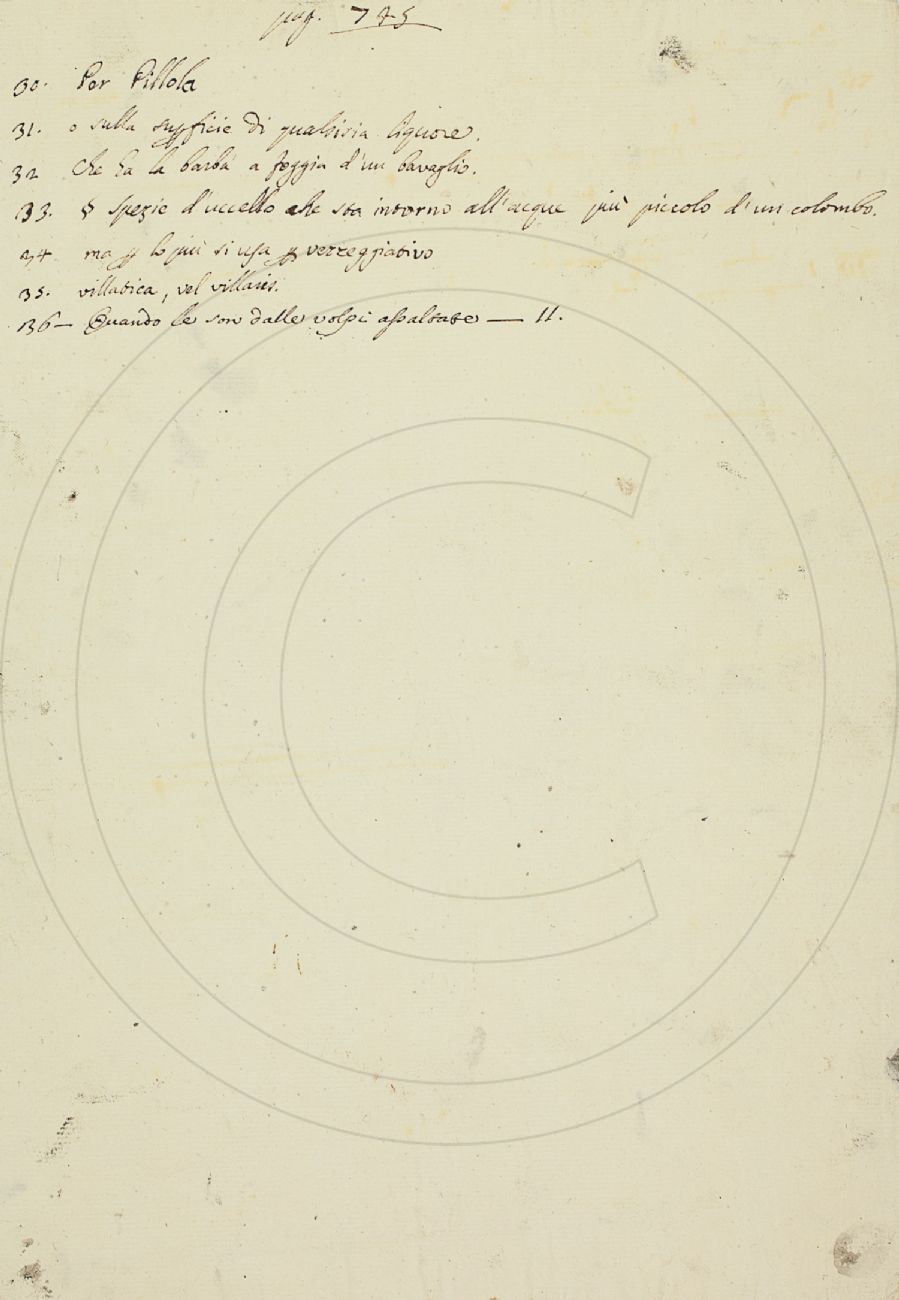 pag. 745
30. Per Pillola
31. o sulla supficie di qualsisia liquore.
32 Che ha la barba a foggia d'un bavaglio.
33. § Spezie d'uccello che sta intorno all'acque più piccolo d'un colombo.
34 ma p lo più si usa p vezzeggiativo
35. villatica, vel villaris.
136 — Quando le son dalle volpi assaltate — 11.